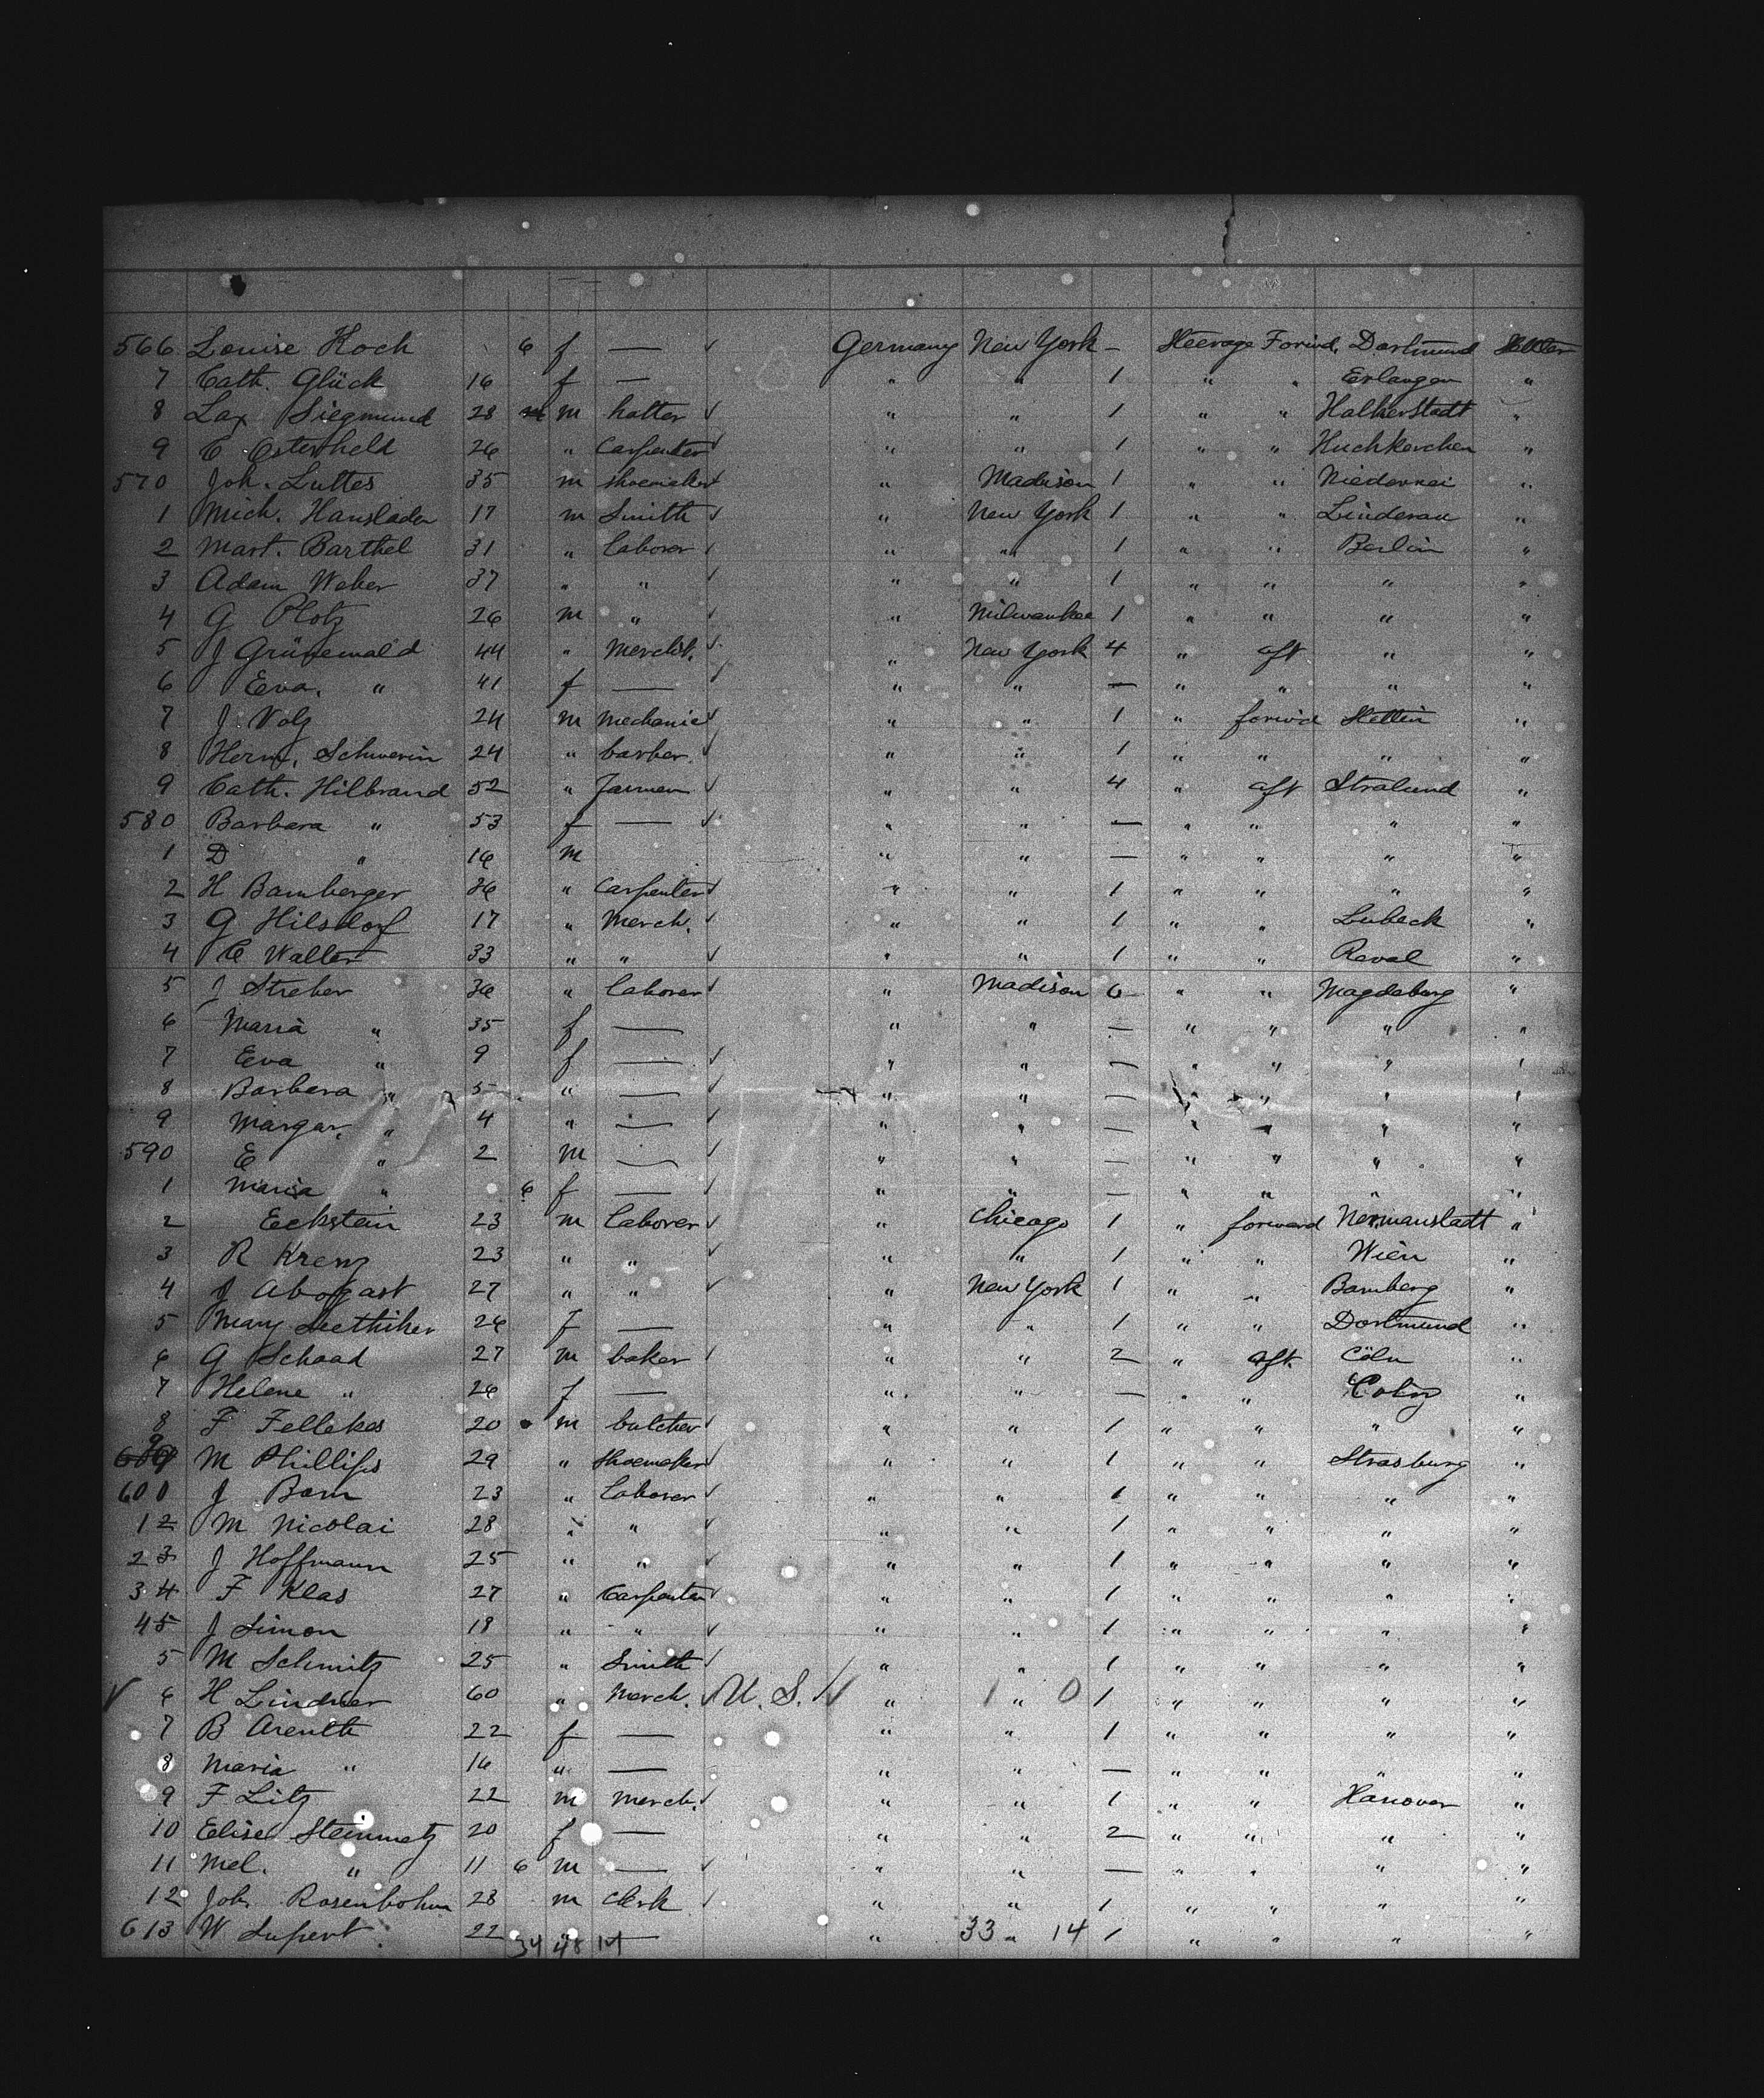 566 Louise Koch 6 f — ✓ Germany New York — Steerage Forwd. Dortmund
7 Cath. Glück 16 f — " " 1 " " Erlangen "
8 Lax Siegmund 28 m hatter ✓ " " 1 " " Halberstadt "
9 C Osterheld 26 " Carpenter ✓ " " 1 " " "
570 Joh. Luttes 35 m shoemaker ✓ " Madison 1 " " "
1 Mich. Hauslader 17 m Smith ✓ " New York 1 " " Lindenau "
2 Mart. Barthel 31 " laborer ✓ " " 1 " " Berlin "
3 Adam Weber 37 " " ✓ " " 1 " " " "
4 G Plotz 26 m " ✓ " Milwaukee 1 " " " "
5 J Grünewald 44 " Mercht. ✓ " New York 4 " aft " "
6 Eva. " 41 f — ✓ " " — " " " "
7 J Volz 24 m mechanic ✓ " " 1 " forw'd Stettin "
8 Herm. Schwerin 24 " barber. ✓ " " 1 " " " "
9 Cath. Hilbrand 52 " Farmer ✓ " " 4 " aft Stralsund "
580 Barbara " 53 f — ✓ " " — " " " "
1 D " 16 m " " — " " " "
2 H Bamberger 36 " Carpenter ✓ " " 1 " " " "
3 G Hilsdorf 17 " Merch. ✓ " " 1 " " Lubeck "
4 C Walter 33 " " ✓ " " 1 " " Reval "
5 J Streber 36 " laborer ✓ " Madison 6 " " Magdeburg "
6 Maria " 35 f — " " — " " " "
7 Eva " 9 f — ✓ " " — " " " "
8 Barbara " 5 " — ✓ " " — " " " "
9 Margar. " 4 " — ✓ " " — " " " "
590 E " 2 m — ✓ " " — " " " "
1 Maria " 6 f — ✓ " " — " " " "
2 Eckstein 23 m laborer ✓ " Chicago 1 " forward Hermanstadt "
3 R Krenz 23 " " ✓ " " 1 " " Wien "
4 J Abogast 27 " " ✓ " New York 1 " " Bamberg "
5 Mary 26 f — " " 1 " " Dortmund "
6 G Schaad 27 m baker ✓ " " 2 " aft. Cöln "
7 Helene " 26 f — " " — " " "
8 F Fellekes 20 m butcher ✓ " " 1 " " " "
9 M Phillips 29 " shoemaker ✓ " " 1 " " Strasburg "
600 J Born 23 " laborer ✓ " " 1 " " " "
1 2 M Nicolai 28 " " ✓ " " 1 " " " "
2 3 J Hoffmann 25 " " ✓ " " 1 " " " "
3 4 F Klas 27 " Carpenter ✓ " " 1 " " " "
4 5 J Simon 18 " " ✓ " " 1 " " " "
5 M Schmitz 25 " Smith ✓ " " 1 " " " "
✓ 6 H Lindner 60 " Merch. ✓ U. S. ✓ " 1 " 0 1 " " " "
7 B Arenth 22 f — " " 1 " " " "
8 Maria " 16 " — " " — " " " "
9 F Litz 22 m merch. ✓ " " 1 " " Hanover "
10 Elise Steinmetz 20 f — " " 2 " " " "
11 Mel. " 11 6 m — ✓ " " — " " " "
12 Joh. Rosenbohm 28 m Clerk ✓ " " 1 " " " "
613 W Lupert 22 " — " 33 " 14 1 " " " "
34 48